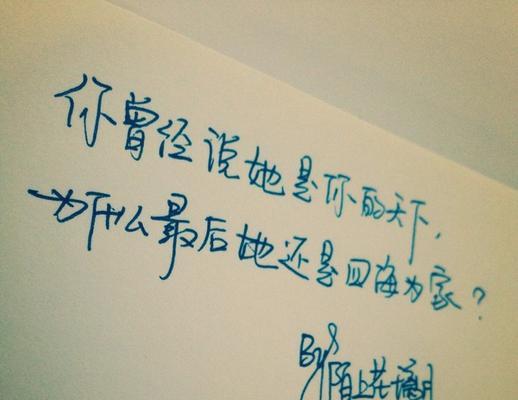 你曾经说她是你的天下,
为什么最后她还是四海为家?
By
陌上花